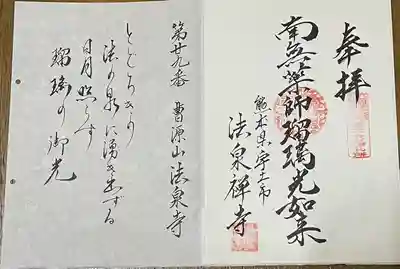 奉拝
南無薬師瑠璃光如来
熊本県宇土市
法泉禅寺
第廿九番 曹源山法泉寺
とどろきの
法の泉に湧き出づる
日月照らす
瑠璃の御光